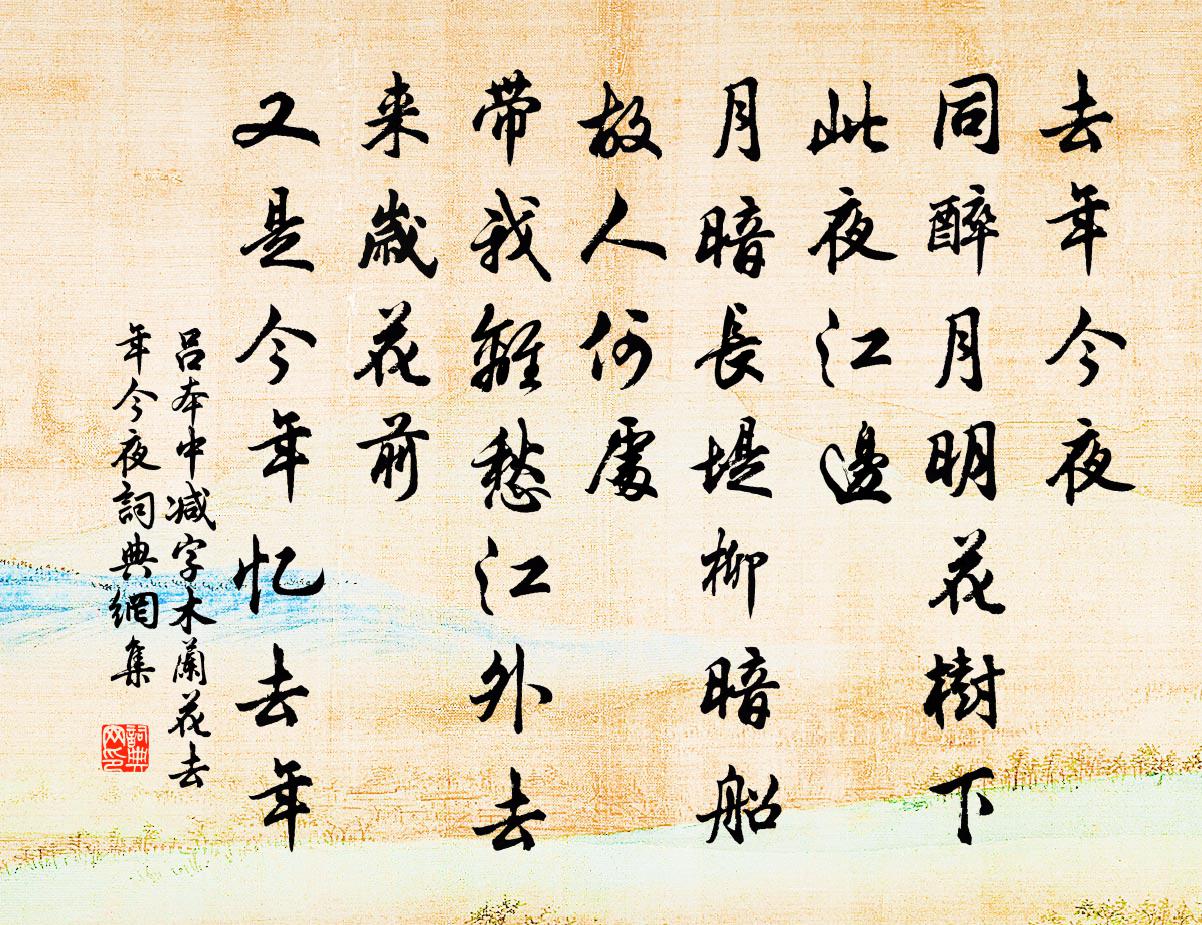 去年今夜
同醉月明花樹下
此夜江邊
月暗長堤柳暗船
故人何處
带我離愁江外去
来歲花前
又是今年忆去年
吕本中减字木蘭花去
年今夜詞典網集
詞典
网印